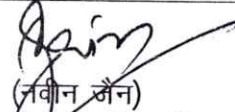 (नवीन जैन)